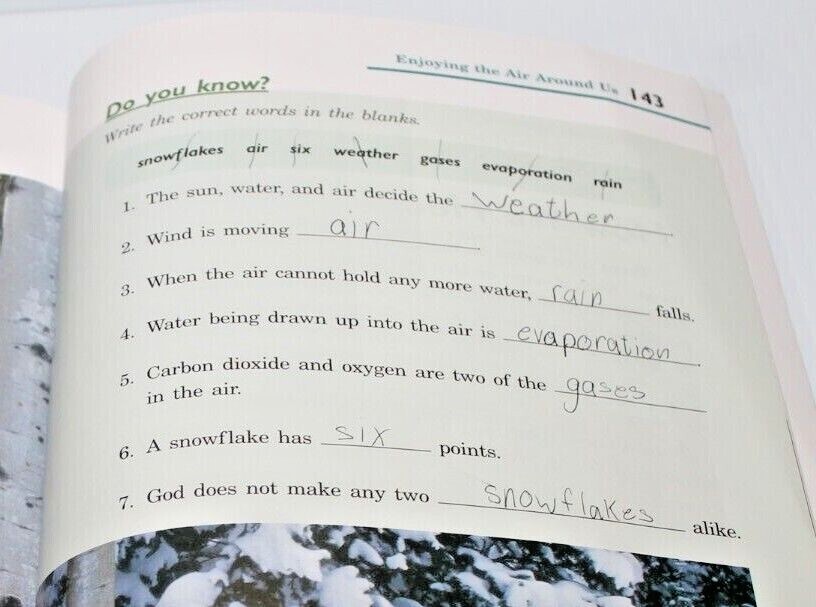 Enjoying the Air Around Us 143
Do you know?
Write the correct words in the blanks.
snowflakes air six weather gases evaporation rain
1. The sun, water, and air decide the weather
2. Wind is moving air.
3. When the air cannot hold any more water, rain falls.
4. Water being drawn up into the air is evaporation.
5. Carbon dioxide and oxygen are two of the gases
in the air.
6. A snowflake has six points.
7. God does not make any two snowflakes alike.